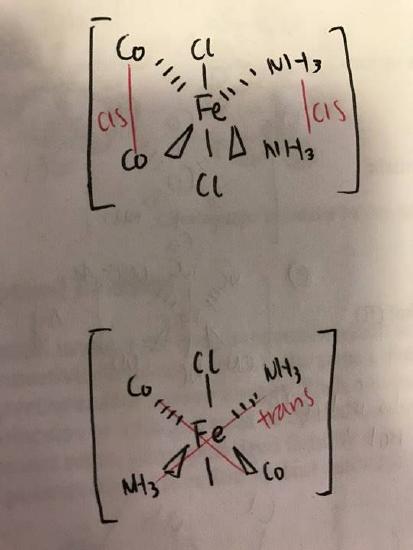 Co Cl NH3
Fe
cis cis
Co NH3
Cl
Cl
Co NH3
trans
Fe
NH3 Co